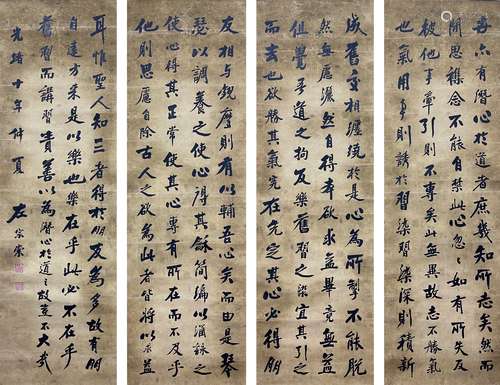 吾亦有潛心於道者庶幾知所志矣然而
閑思雜念不能自禁此心忽々如有所失反
被他事牽引則不專矣此無異故志不勝氣
也氣用事則誘於習染習染深則積新
成舊交相纏繞於是心為所掣不能脫
然無慮灑然自得卒欲求益畢竟無益
但覺吾道之拘反樂舊習之染宜其引之
而去也欲勝其氣完在先定其心必得朋
友相與觀摩則有以輔吾心矣而由是琴
瑟以調養之使心得其龢簡編以涵詠之
使心得其正常使其心專有所在而不及乎
他則思慮自除古人之欲為此者皆將以求益
耳惟聖人知三者得於朋友為多故有朋
自遠方來是以樂也樂在乎此必不在乎
舊習而講習責善以為潛心於道之故豈不大哉
光緒十年仲夏 左宗棠